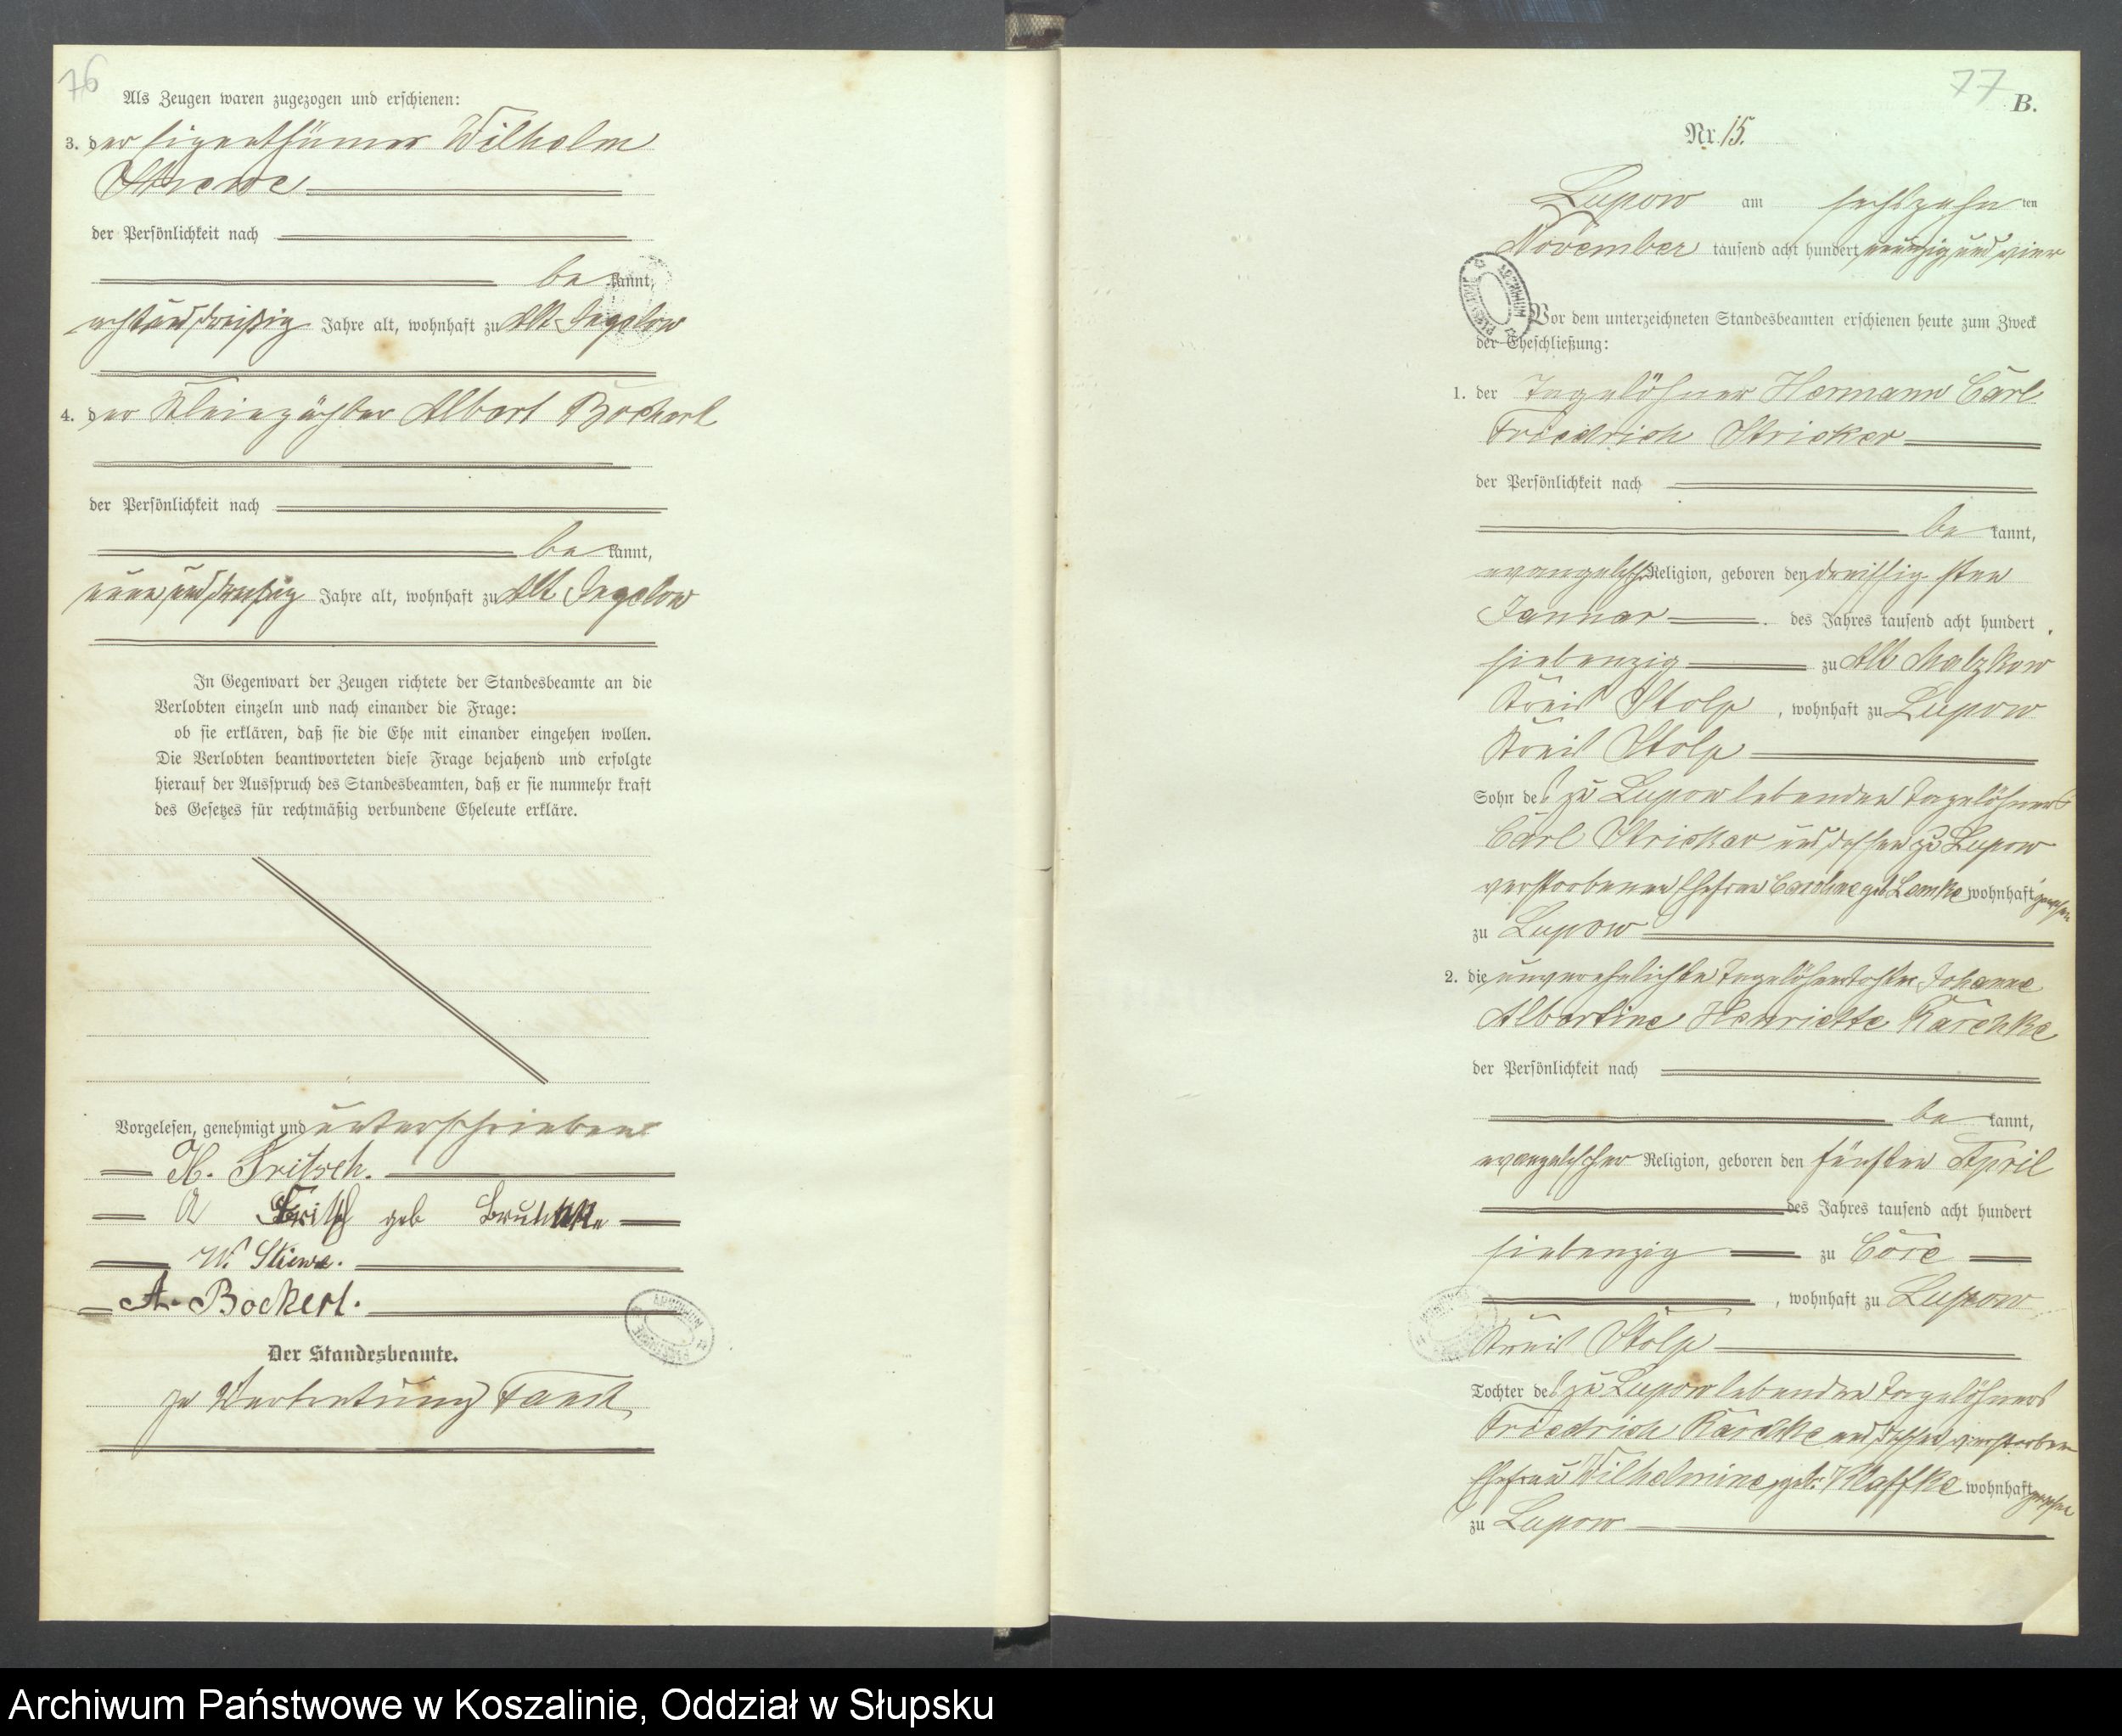 76
Als Zeugen waren zugezogen und erschienen:
3. der Eigenthümer Wilhelm
der Persönlichkeit nach
bekannt,
achtunddreißig Jahre alt, wohnhaft zu Alt Jugelow
4. der Kleinpächter Albert Bockert
der Persönlichkeit nach
bekannt,
neununddreißig Jahre alt, wohnhaft zu Alt Jugelow
In Gegenwart der Zeugen richtete der Standesbeamte an die
Verlobten einzeln und nach einander die Frage:
ob sie erklären, daß sie die Ehe mit einander eingehen wollen.
Die Verlobten beantworteten diese Frage bejahend und erfolgte
hierauf der Ausspruch des Standesbeamten, daß er sie nunmehr kraft
des Gesetzes für rechtmäßig verbundene Eheleute erkläre.
Vorgelesen, genehmigt und unterschrieben
H. Fritsch.
A Fritsch geb
W.
A. Bockert.
Der Standesbeamte.
In Vertretung
77
B.
Nr. 15.
Lupow am sechszehnten
November tausend acht hundert neunzig und vier
Vor dem unterzeichneten Standesbeamten erschienen heute zum Zweck
der Eheschließung:
1. der Tagelöhner Hermann Carl
Friedrich Stricker
der Persönlichkeit nach
bekannt,
evangelischer Religion, geboren den dreissigsten
Januar des Jahres tausend acht hundert
siebenzig zu Alt Malzkow
Kreis Stolp, wohnhaft zu Lupow
Kreis Stolp
Sohn des zu Lupow lebenden Tagelöhners
Carl Stricker und dessen zu Lupow
verstorbenen Ehefrau Caroline geb Lemke wohnhaft gewesen
zu Lupow
2. die unverehelichte Tagelöhnertochter Johanne
Albertine Henriette Karchke
der Persönlichkeit nach
bekannt,
evangelischer Religion, geboren den fünften April
des Jahres tausend acht hundert
siebenzig zu
, wohnhaft zu Lupow
Kreis Stolp
Tochter des zu Lupow lebenden Tagelöhners
Friedrich Karchke und dessen verstorbenen
Ehefrau Wilhelmine geb. Klaffke wohnhaft gewesen
zu Lupow
Archiwum Państwowe w Koszalinie, Oddział w Słupsku